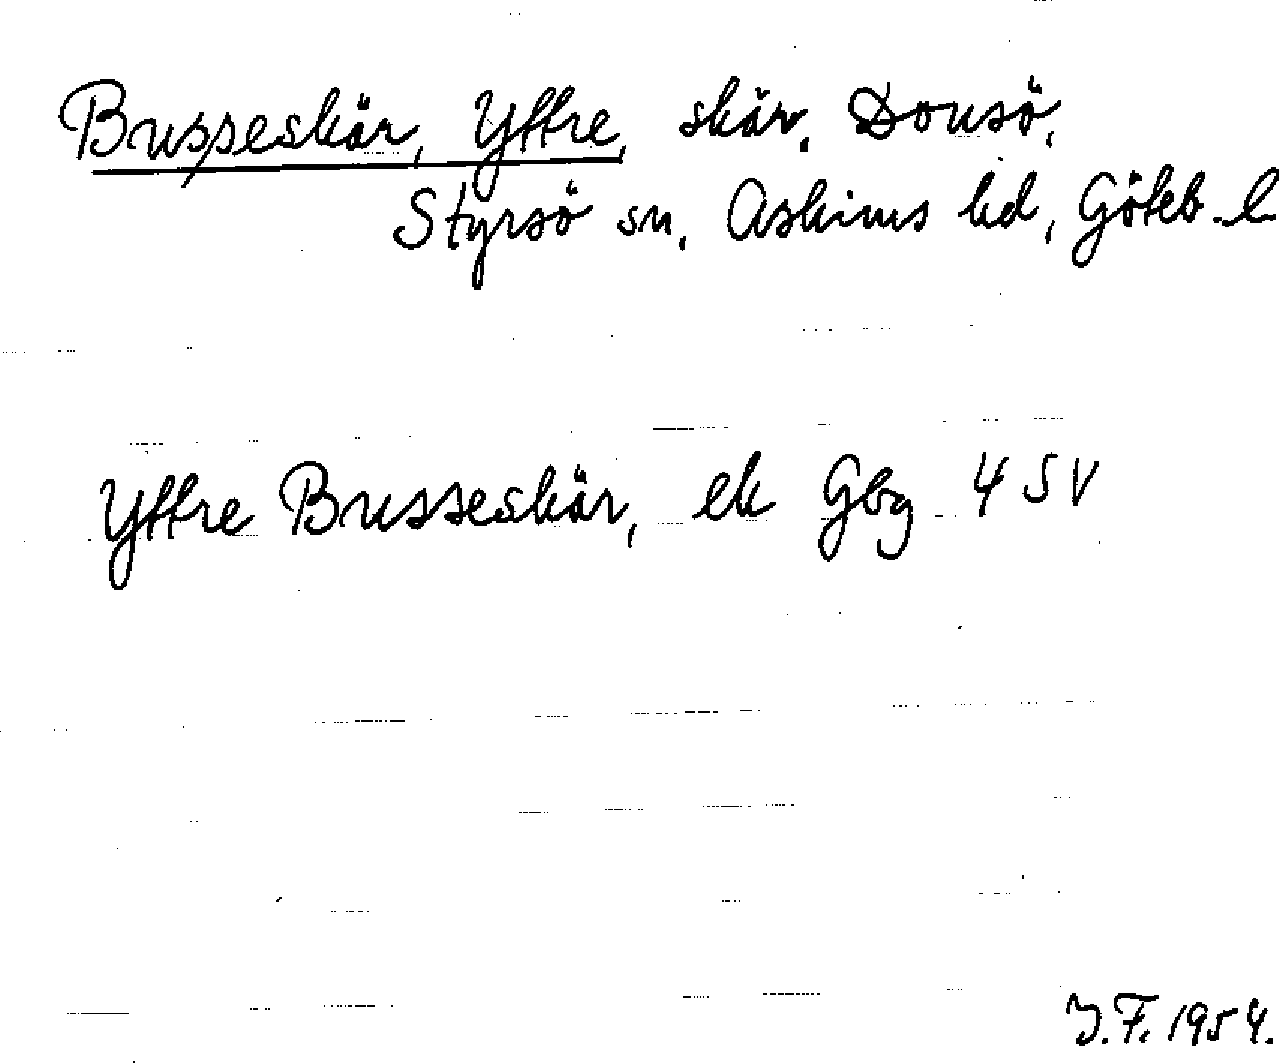 Busseskär, Yttre, skär, Donsö,
Styrsö sn, Askims hd, Göteb. l
Yttre Busseskär, ek Gbg 4 SV
J.F. 1954.